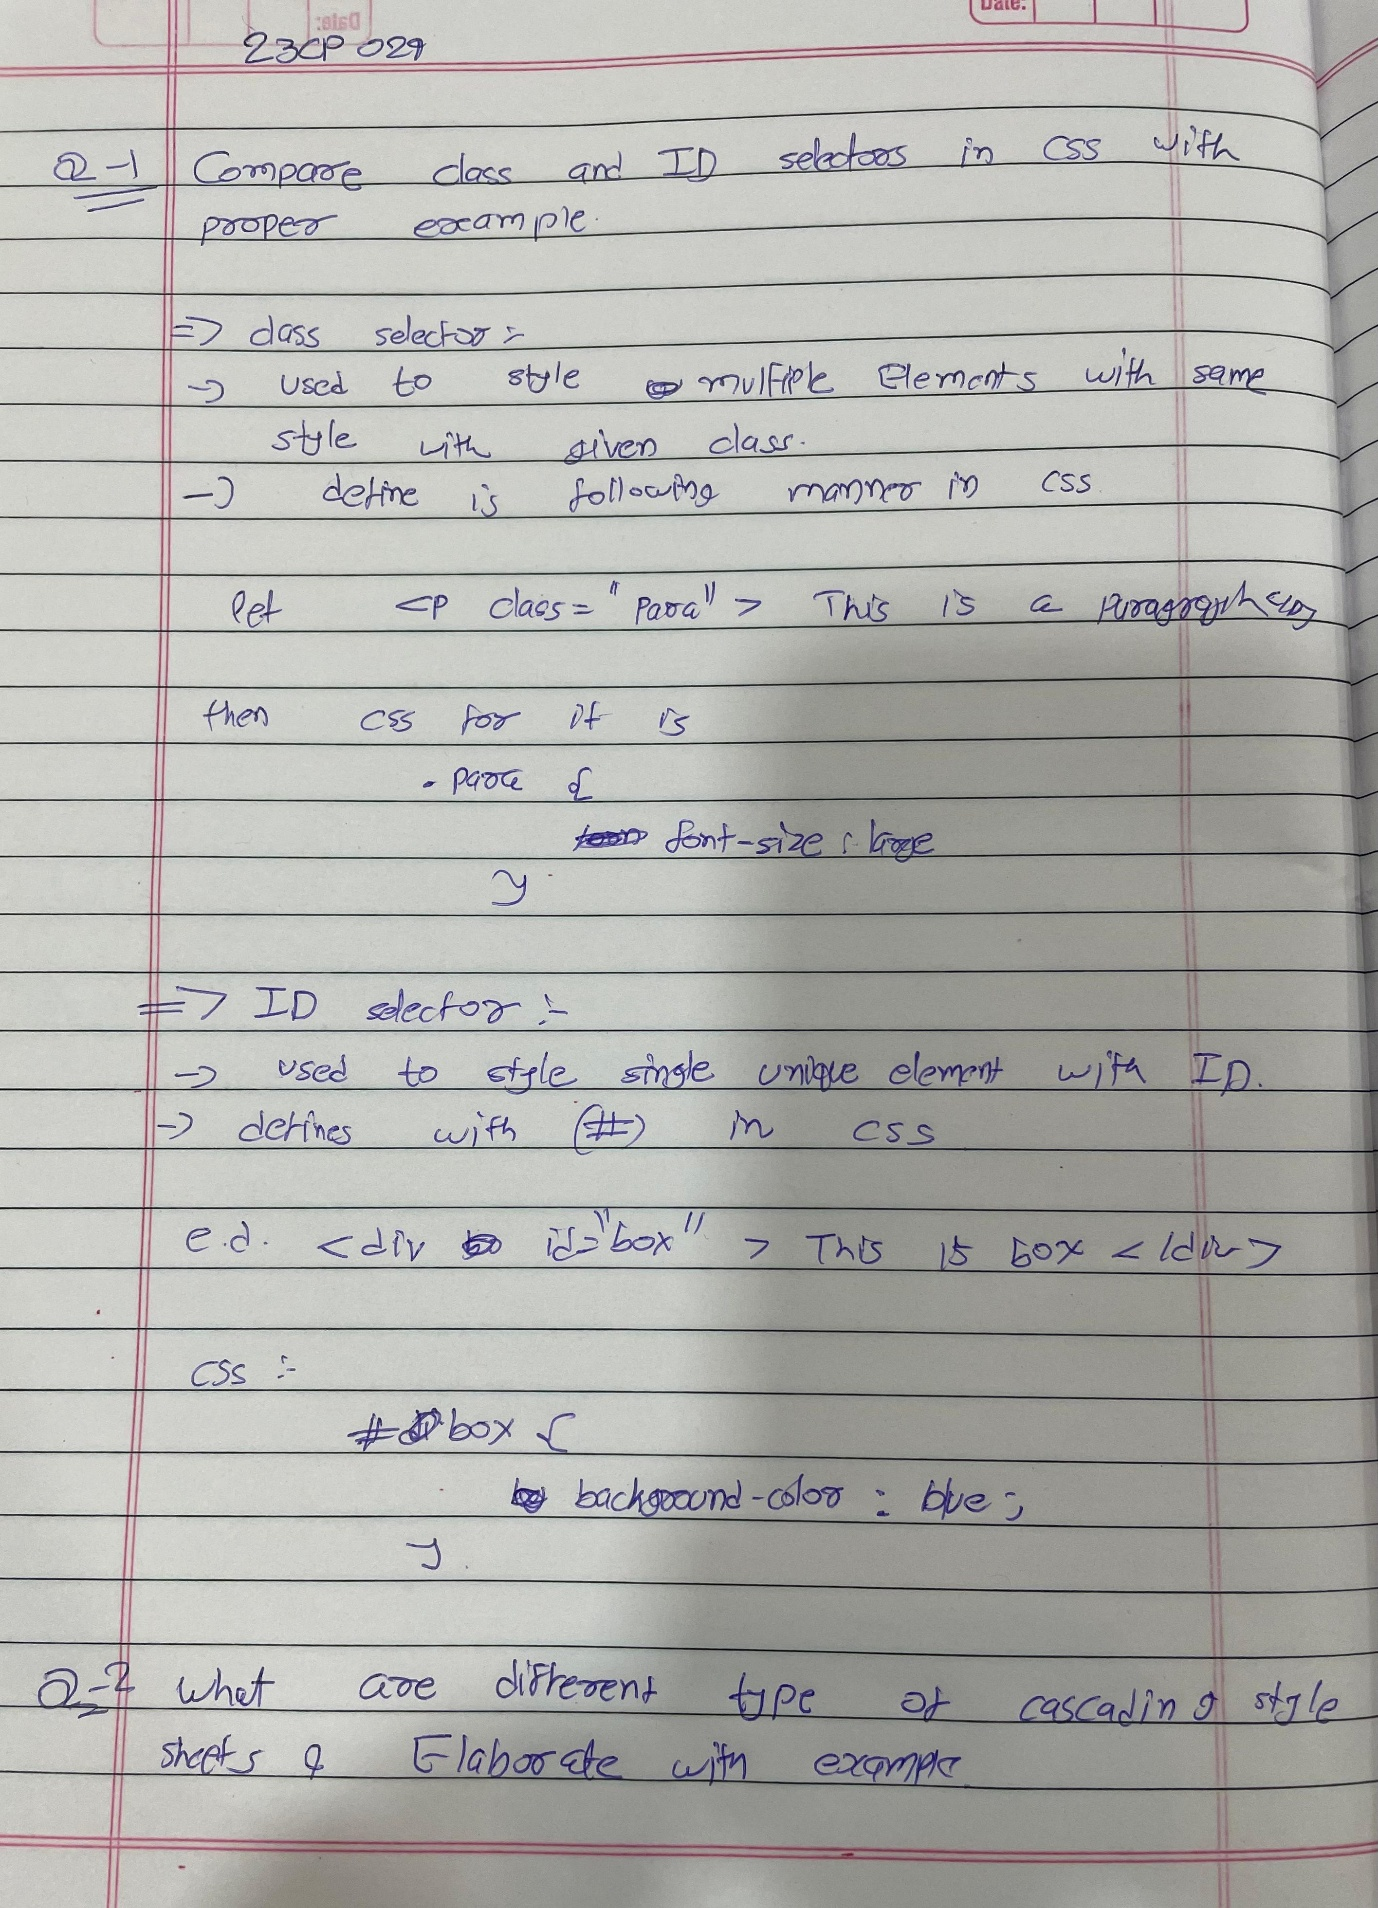 Date:
Date:
23CP029
Q-1 Compare class and ID selectors in CSS with
proper example.
=> class selector :-
-> used to style multiple Elements with same
style with given class.
-> define is following manner in CSS
let <p class="para"> This is a Paragraph
then CSS for it is
.para {
font-size : large
}
=> ID selector :-
-> used to style single unique element with ID.
-> defines with (#) in CSS
e.d. <div id="box" > This is box </div>
CSS :-
#box {
background-color : blue ;
}
Q-2 What are different type of cascading style
sheets & Elaborate with example